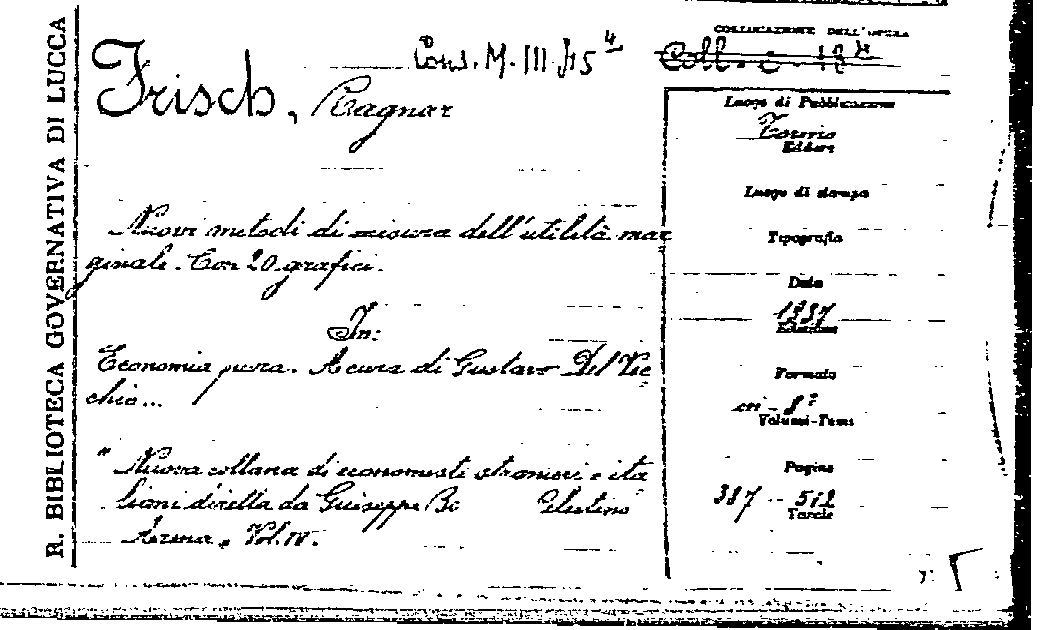 R. BIBLIOTECA GOVERNATIVA DI LUCCA
Cons. M. III 15 4
COLLOCAZIONE DELL'OPERA
Frisch, Ragnar
Luogo di Pubblicazione
Torino
Editore
Luogo di stampa
Nuovi metodi di misura dell'utilità mar
ginale. Con 20 grafici.
Tipografia
Data
1937
Edizione
In:
Economia pura. A cura di Gustavo Del Vec
chio...
Formato
in-8°
Volumi-Tomi
"Nuova collana di economisti stranieri e ita
liani diretta da Giuseppe Bo Celestino
Arena, Vol. IV.
Pagine
387-512
Tavole